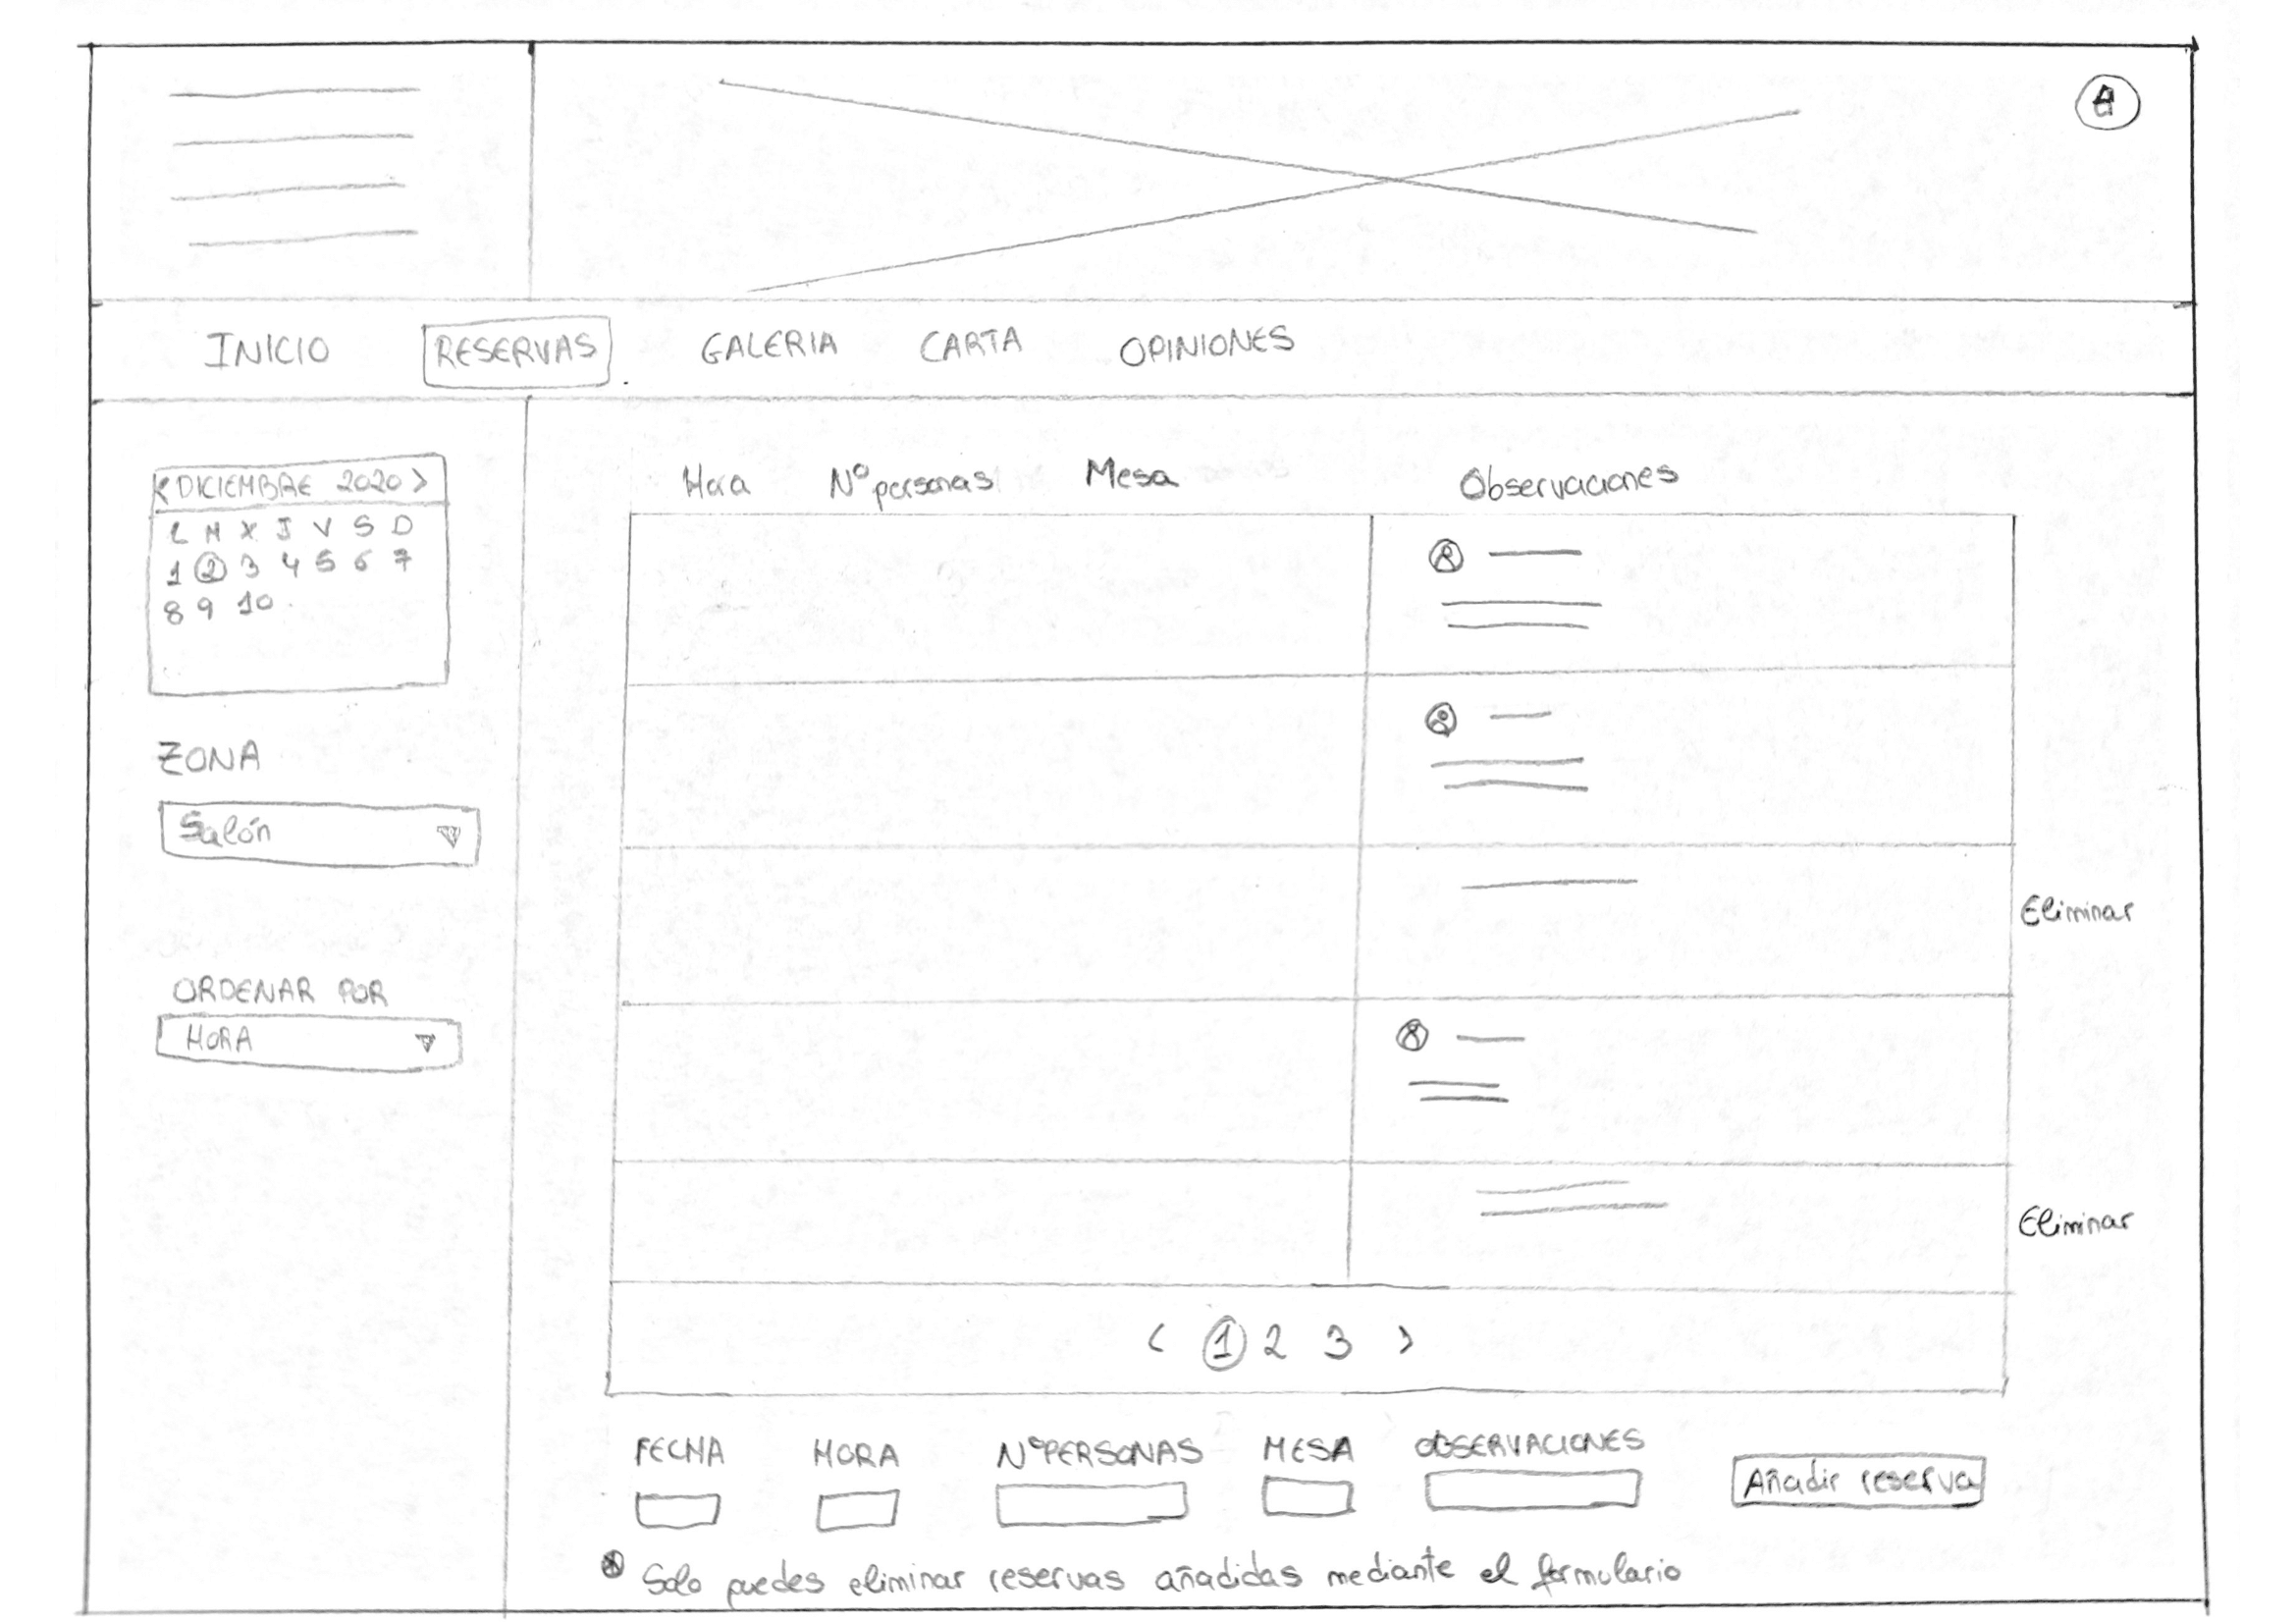 INICIO RESERVAS GALERIA CARTA OPINIONES
< DICIEMBRE 2020 >
L M X J V S D
1 2 3 4 5 6 7
8 9 10
ZONA
Salón
ORDENAR POR
HORA
Hora Nº personas Mesa Observaciones
Eliminar
Eliminar
< 1 2 3 >
FECHA HORA NºPERSONAS MESA OBSERVACIONES
Añadir reserva
Solo puedes eliminar reservas añadidas mediante el formulario